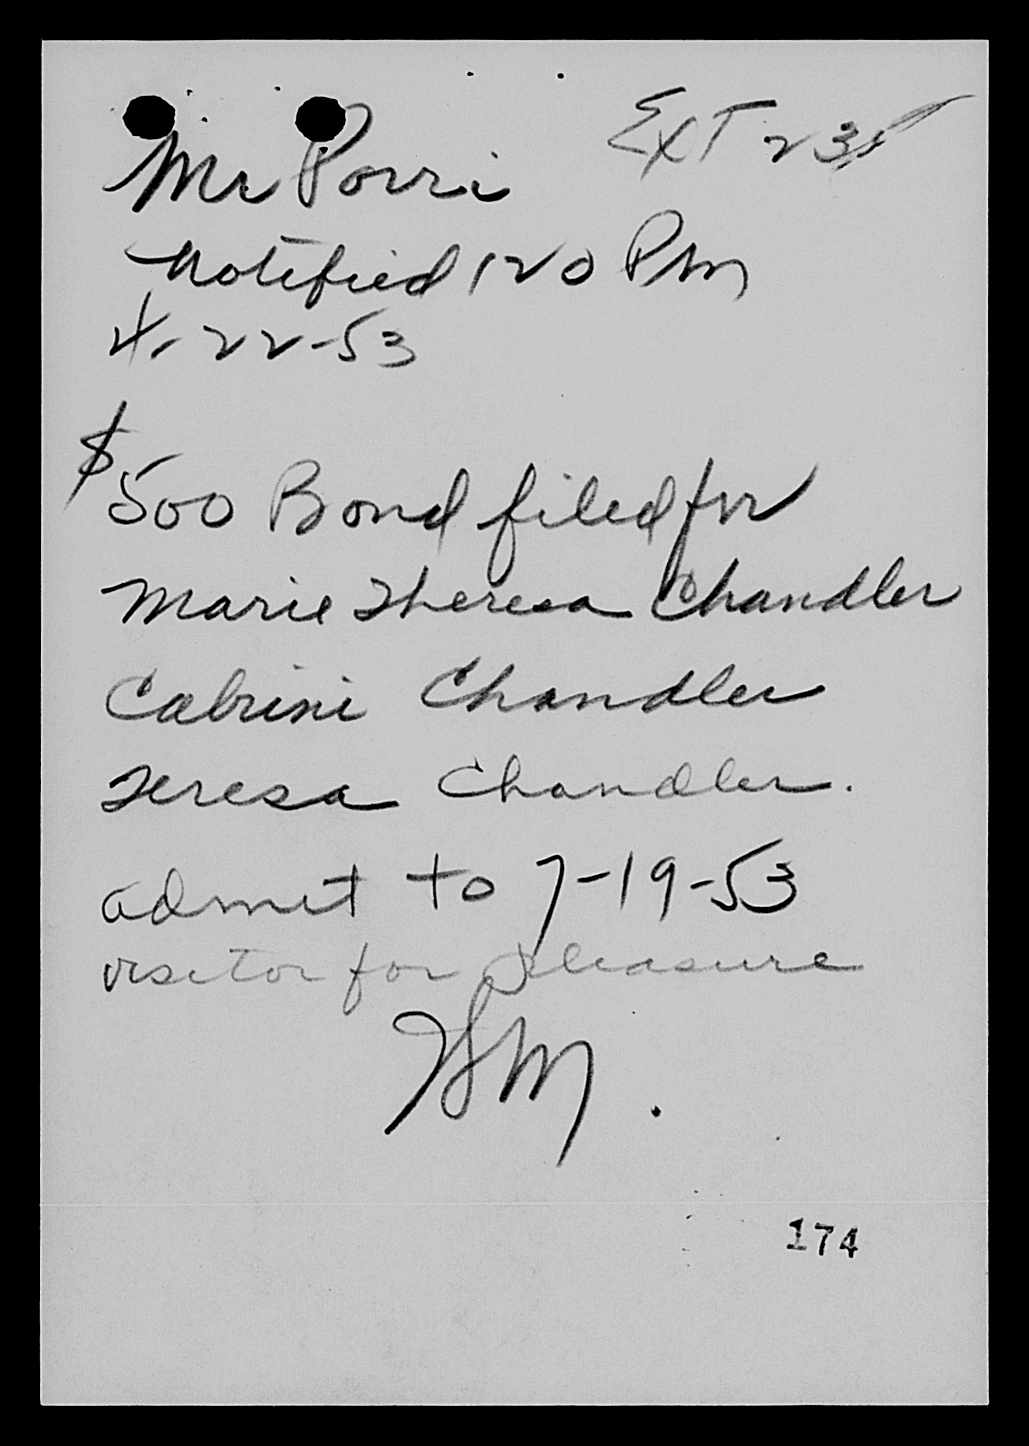 Mr Porri Ext 235
Notified 120 PM
4-22-53
$500 Bond filed for
Marie Theresa Chandler
Cabrini Chandler
Teresa Chandler.
admit to 7-19-53
visitor for pleasure
174